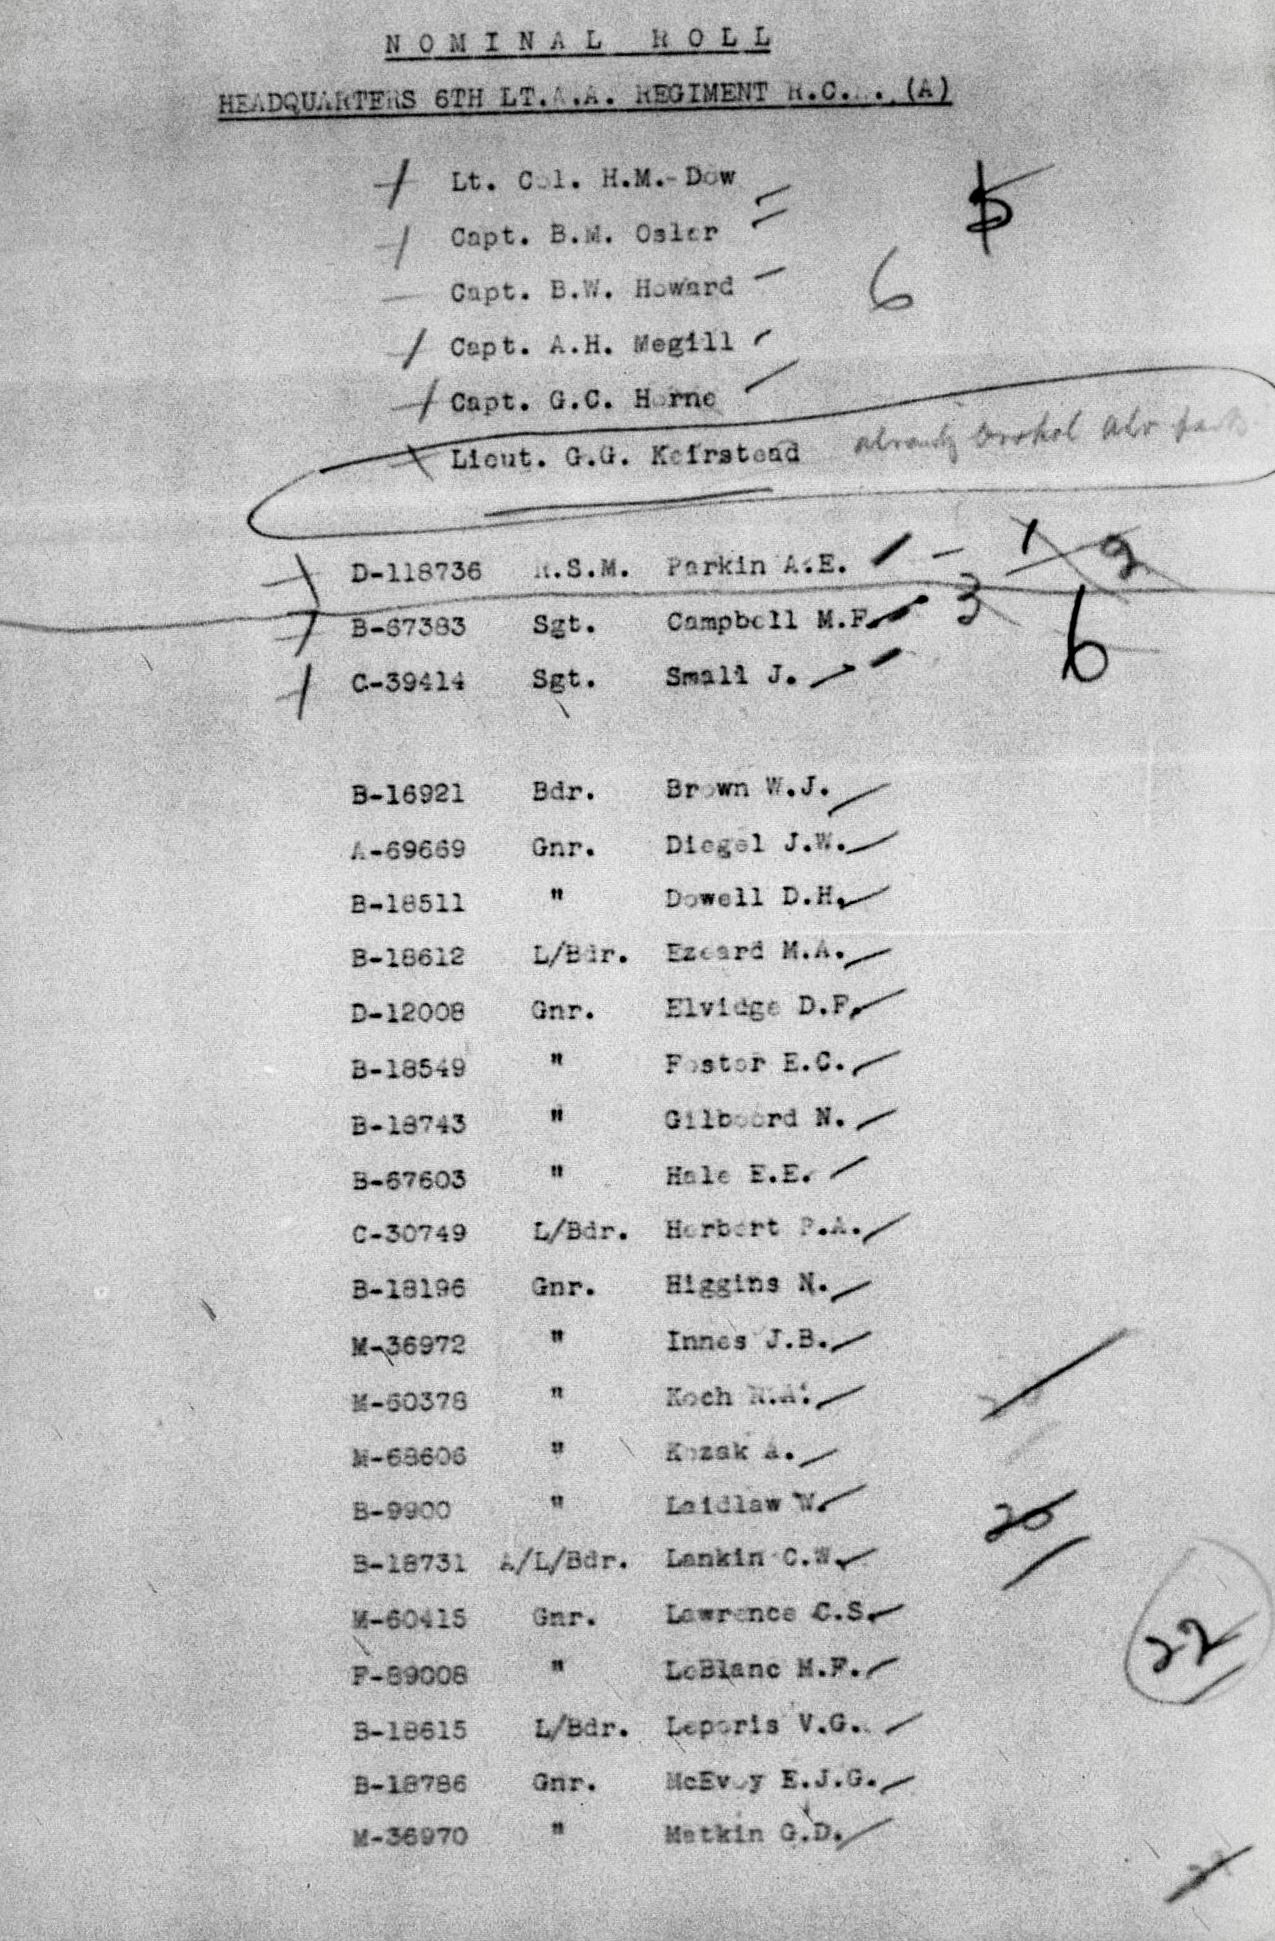 NOMINAL ROLL
HEADQUARTERS 6TH LT.A.A. REGIMENT R.C.A. (A)
Lt. Col. H.M. Dow
5
Capt. B.M. Osler
Capt. B.W. Howard
6
Capt. A.H. Megill
Capt. G.C. Horne
Lieut. G.G. Keirstead already
D-118736 R.S.M. Parkin A.E. 1 2
B-67383 Sgt. Campbell M.F. 3
C-39414 Sgt. Small J. 6
B-16921 Bdr. Brown W.J.
A-69669 Gnr. Diegel J.W.
B-18511 " Dowell D.H.
B-18612 L/Bdr. Ezeard M.A.
D-12008 Gnr. Elvidge D.F.
B-18549 " Foster E.C.
B-18743 " Gilboord N.
B-67603 " Hale E.E.
C-30749 L/Bdr. Herbert P.A.
B-18196 Gnr. Higgins N.
M-36972 " Innes J.B.
M-60378 " Koch R.A.
M-68606 " Kozak A.
B-9900 " Laidlaw W.
20
B-18731 A/L/Bdr. Lankin C.W.
M-60415 Gnr. Lawrence C.S.
22
F-89008 " LeBlanc M.F.
B-18615 L/Bdr. Leporis V.G.
B-18786 Gnr. McEvoy E.J.G.
M-36970 " Matkin G.D.